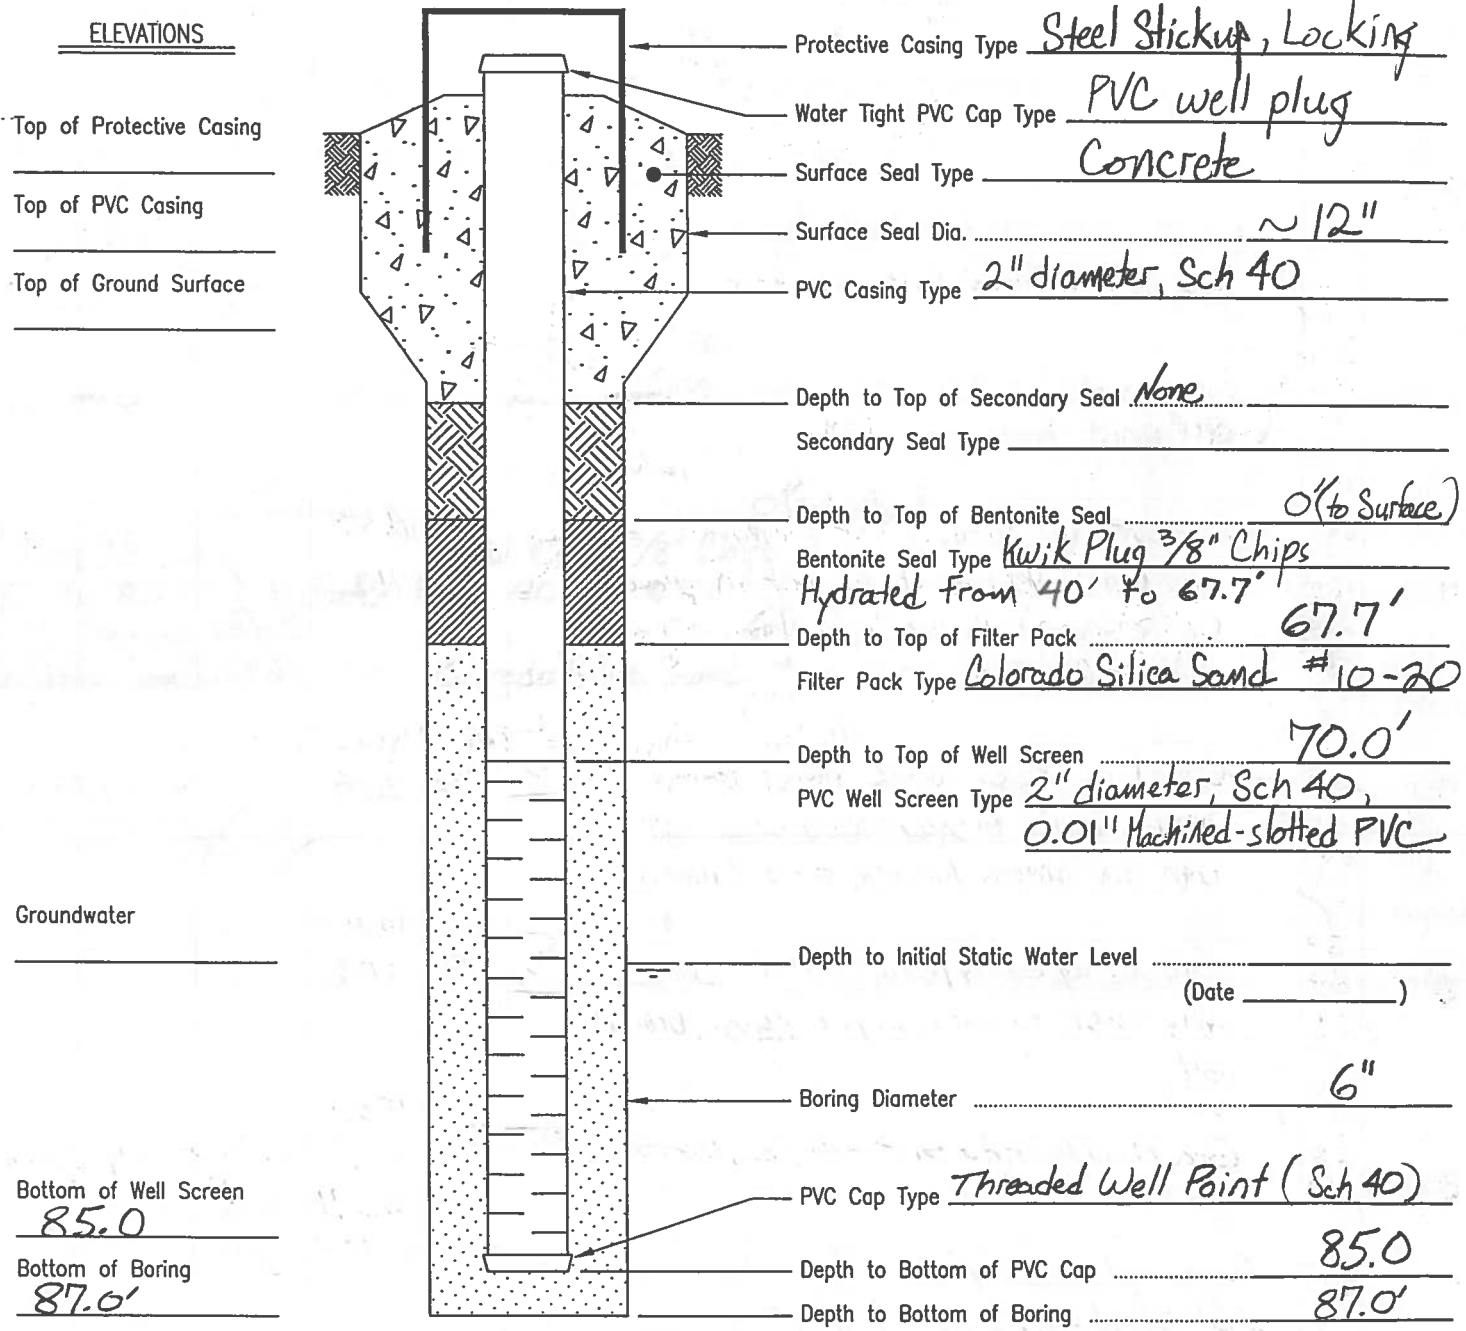 ELEVATIONS
Top of Protective Casing
Top of PVC Casing
Top of Ground Surface
Groundwater
Bottom of Well Screen
85.0
Bottom of Boring
87.0'
Protective Casing Type Steel Stickup, Locking
Water Tight PVC Cap Type PVC well plug
Surface Seal Type Concrete
Surface Seal Dia. ~12"
PVC Casing Type 2" diameter, Sch 40
Depth to Top of Secondary Seal None
Secondary Seal Type
Depth to Top of Bentonite Seal 0' (to Surface)
Bentonite Seal Type Kwik Plug 3/8" Chips
Hydrated from 40' to 67.7'
Depth to Top of Filter Pack 67.7'
Filter Pack Type Colorado Silica Sand #10-20
Depth to Top of Well Screen 70.0'
PVC Well Screen Type 2" diameter, Sch 40,
0.01" Machined-slotted PVC
Depth to Initial Static Water Level
(Date )
Boring Diameter 6"
PVC Cap Type Threaded Well Point (Sch 40)
Depth to Bottom of PVC Cap 85.0
Depth to Bottom of Boring 87.0'